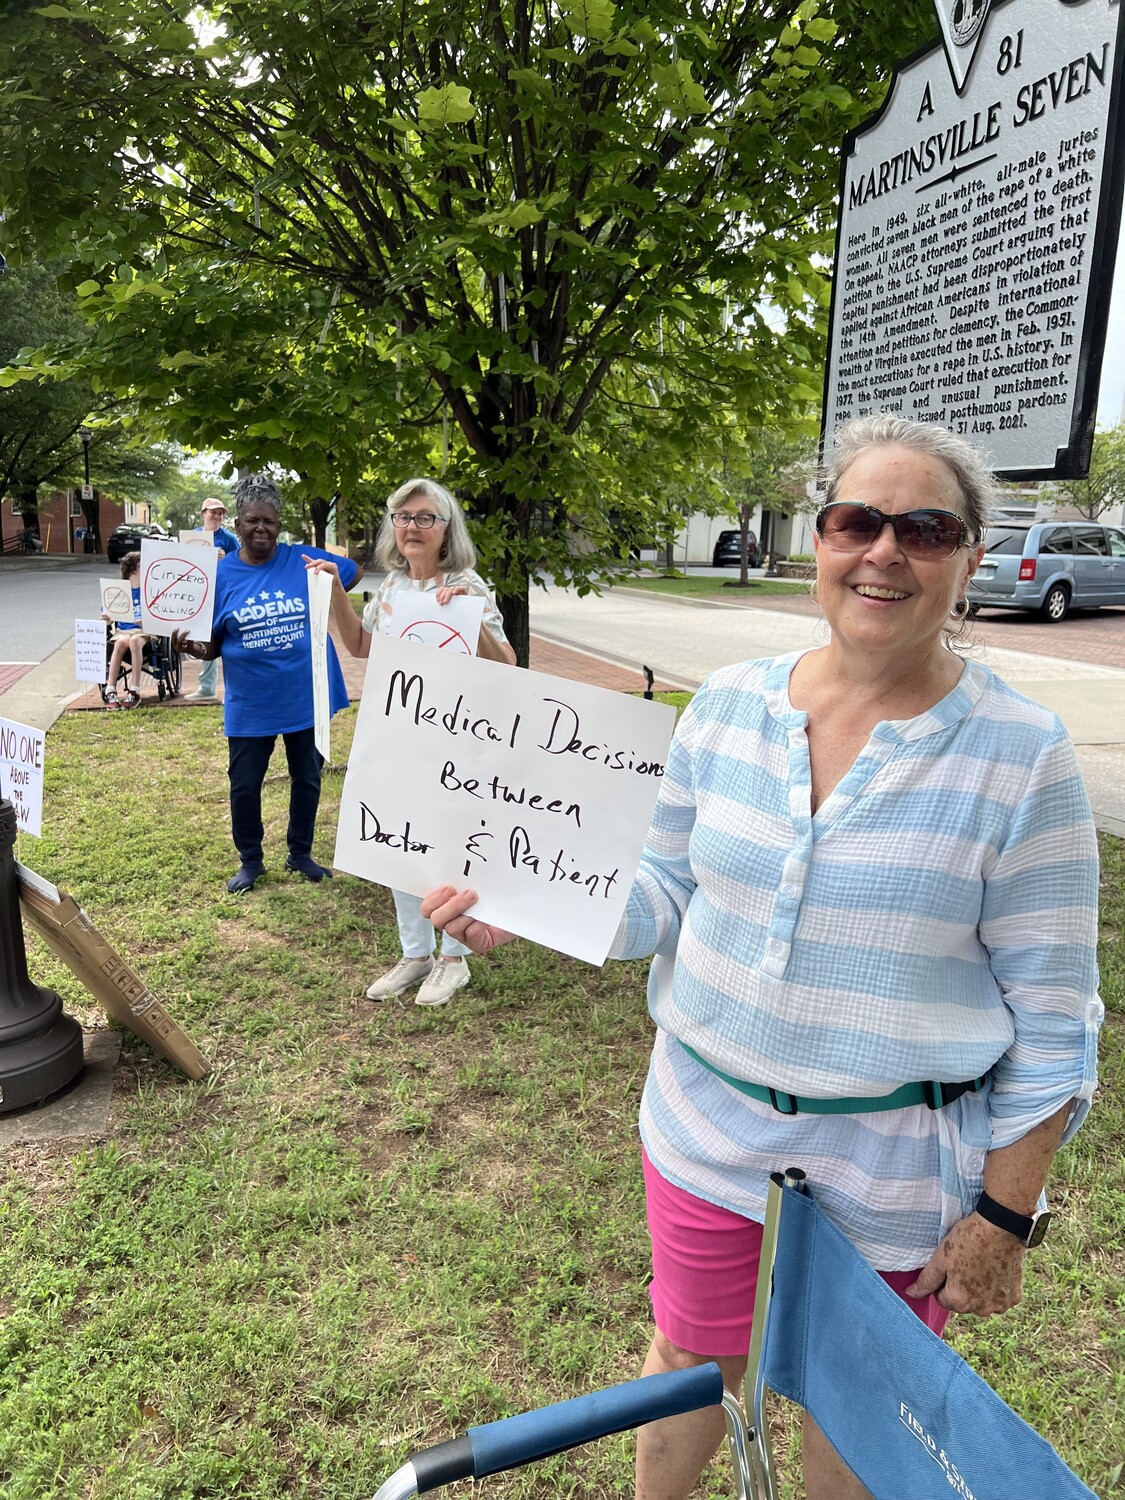 A 81
MARTINSVILLE SEVEN
Here in 1949, six all-white, all-male juries
convicted seven black men of the rape of a white
woman. All seven men were sentenced to death.
On appeal, NAACP attorneys submitted the first
petition to the U.S. Supreme Court arguing that
capital punishment had been disproportionately
applied against African Americans in violation of
the 14th Amendment. Despite international
attention and petitions for clemency, the Common-
wealth of Virginia executed the men in Feb. 1951,
the most executions for a rape in U.S. history. In
1977, the Supreme Court ruled that execution for
rape was cruel and unusual punishment.
issued posthumous pardons
31 Aug. 2021.
CITIZENS
UNITED
RULING
VADEMS
OF
MARTINSVILLE &
HENRY COUNTY
Medical Decisions
Between
Doctor & Patient
NO ONE
ABOVE
THE
LAW
FIELD &